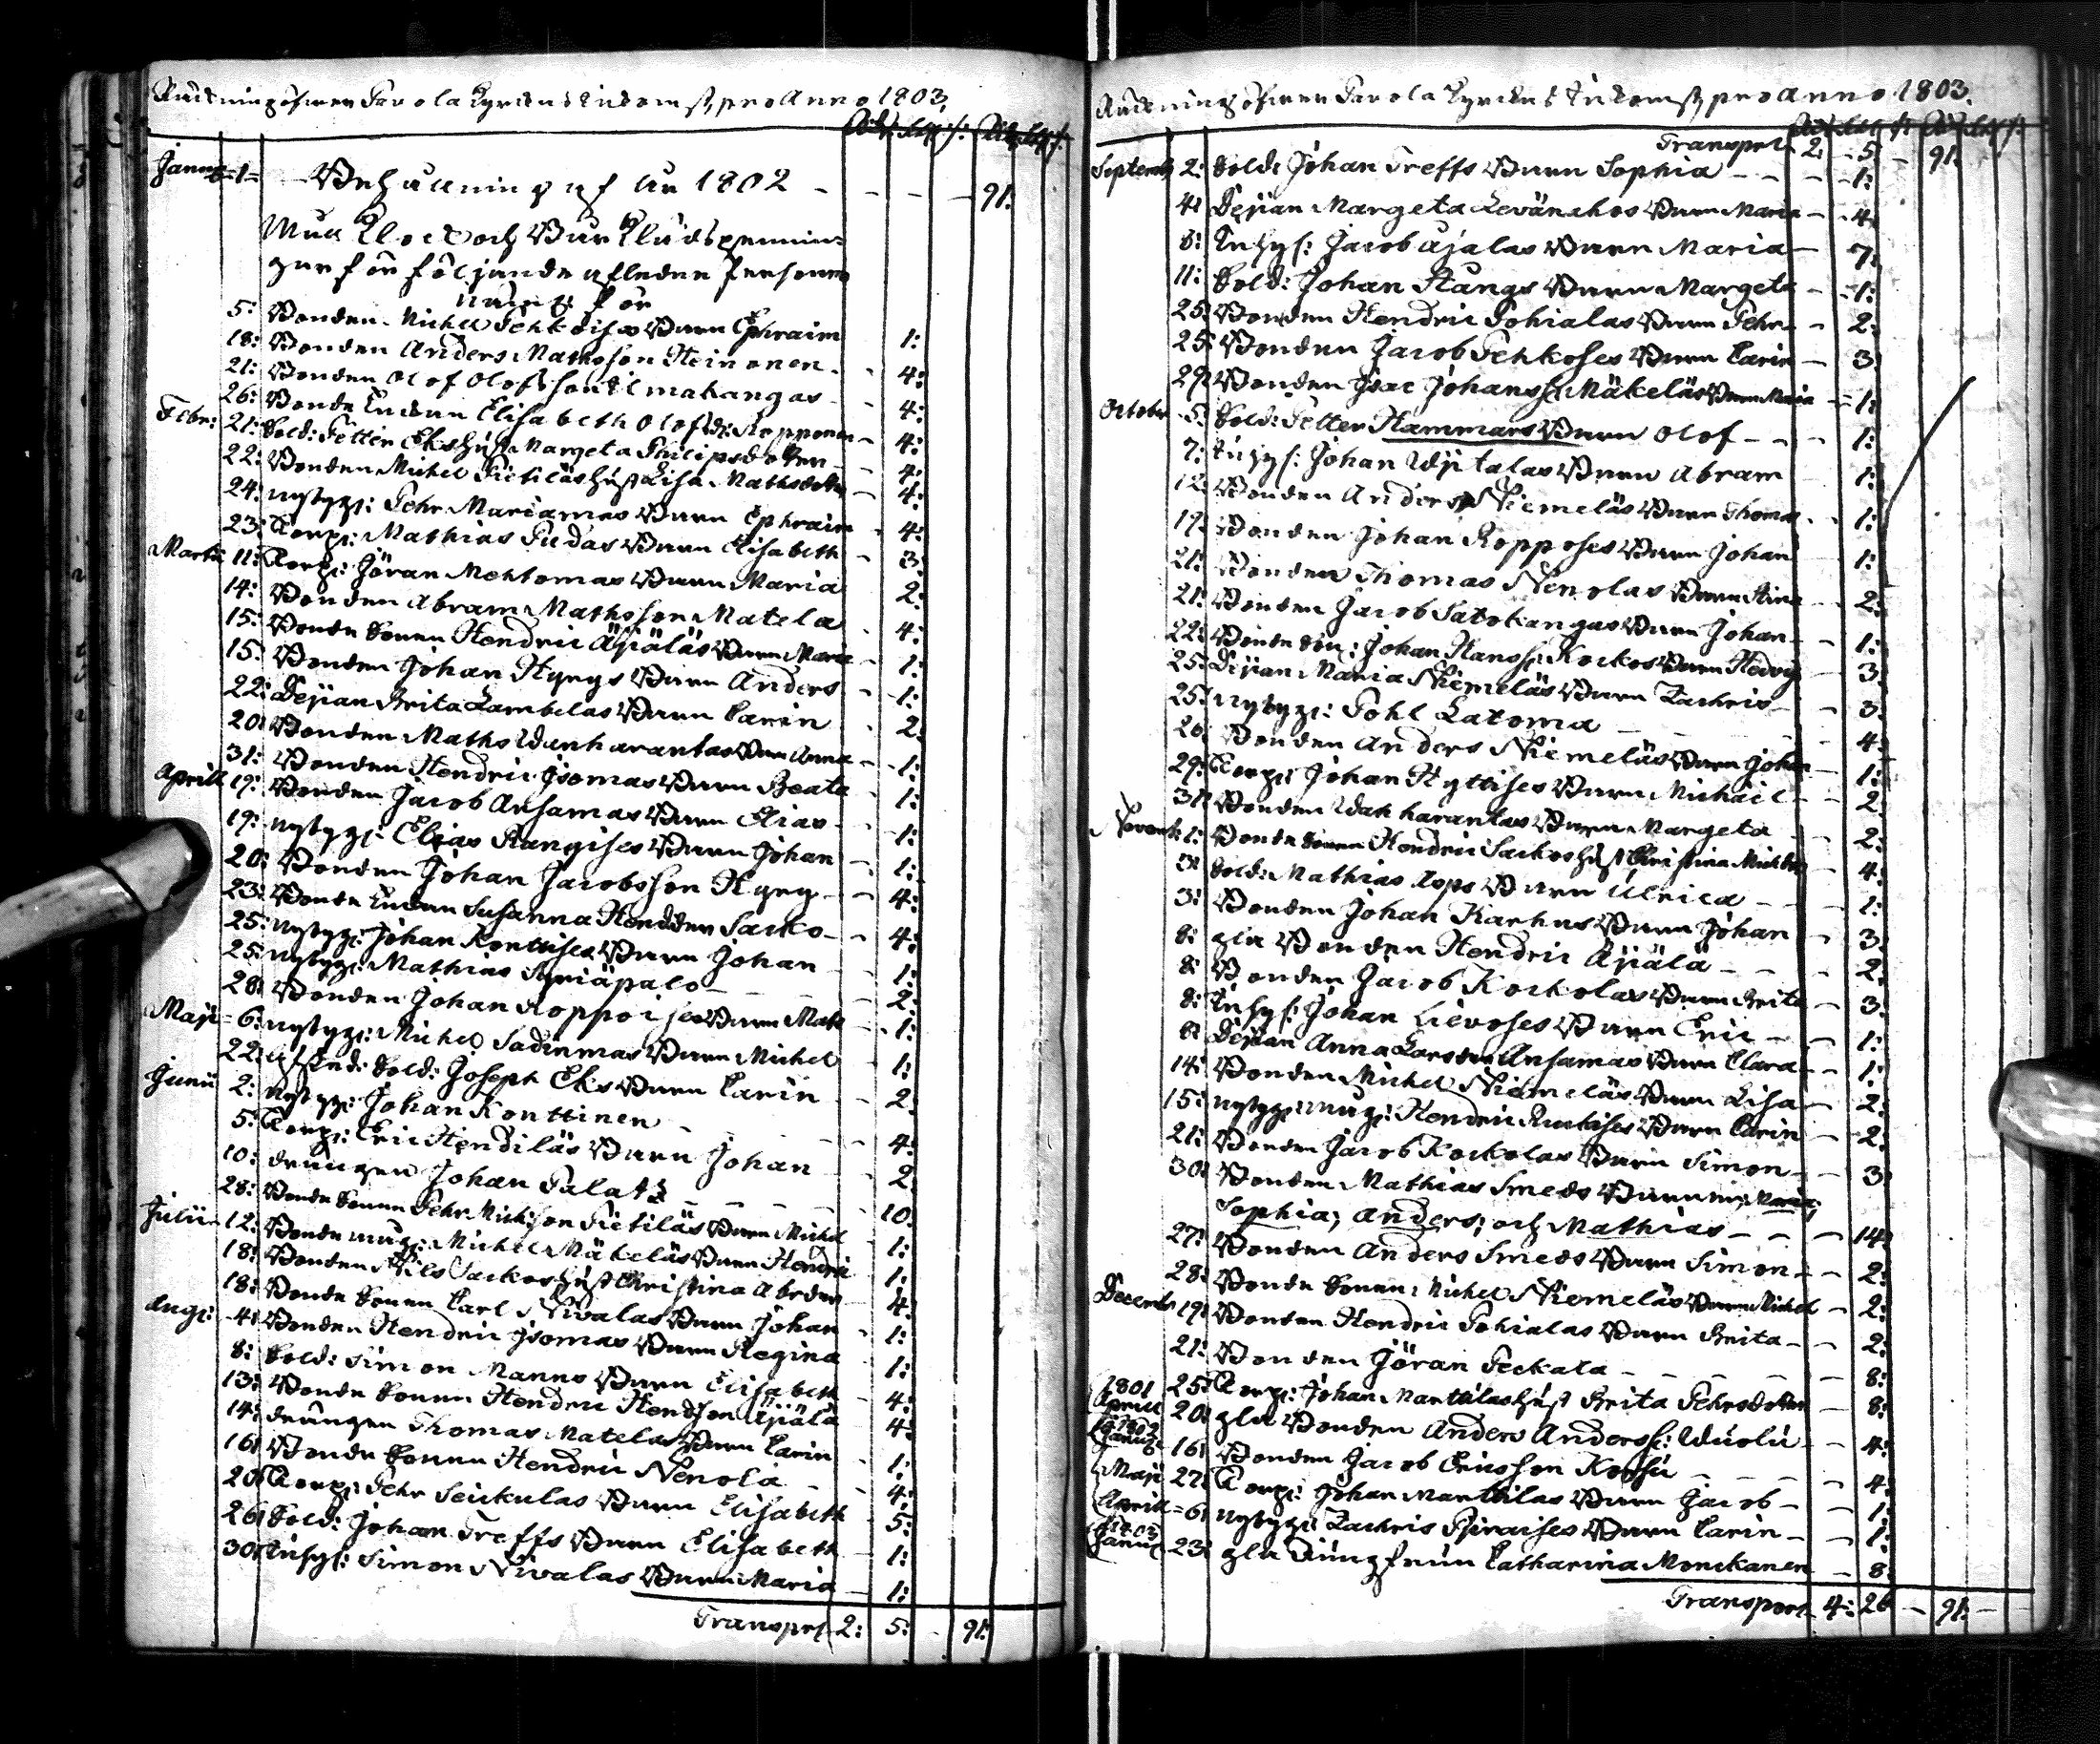 Räkning öfwer Pavola Kyrckas Inkomst, pro Anno 1803.
Rdr: sk: r: Rdr: sk: r:
Januari 1 Behållning af År 1802 - - - 91:
Med Klock och Bår Klädspennin=
gar för följande afledne Personer
näml: för
5: Bonden Michel Pehkoises Barn Ephraim 1:
18: Bonden Anders Mathsson Heinonen - 4:
21: Bonden Olof Olofsson Ilmakangas - 4:
26: Bonde Enkan Elisabeth Olofsdr: Ropponen - 4:
Febr: 21: Sold: Petter Eks Hust: Margeta Philipsdotter - 4:
22: Bonden Michel Pietiläs Hust: Lisa Mathsdotter - 4:
24: nybygg: Pehr Mariamas Barn Ephraim - 4:
23: Torp: Mathias Pudas Barn Elisabeth - 3:
Martii 11: Torp: Göran Mehtomas Barn Maria 2:
14: Bonden Abram Mathsson Matela - 4:
15: Bonde Sonen Hendric Äjäläs Barn Maria - 1:
15: Bonden Johan Hyrys Barn Anders - 1:
22: Pejian Brita Lambelas Barn Carin - 2:
20: Bonden Maths Wanharantas Barn Anna - 1:
31: Bonden Hendric Isomas Barn Beata - 1:
Aprill 19: Bonden Jacob Ansamas Barn Elias - 1:
19: nybygg: Elias Kangises Barn Johan - 1:
20: Bonden Johan Jacobsson Hyry - 4:
23: Bonde Enkan Susanna Hendder Sarko - 4:
25: nybygg: Johan Konttises Barn Johan - 1:
25: nybygg: Mathias Syriäpalo - 2:
28: Bonden Johan Roppoises Barn Math - 1:
Maji 6: nybygg: Michel Sadinmas Barn Michel 1:
22: Afsked: Sold: Joseph Eks Barn Carin 2:
Junii 2: nybygg: Johan Konttinen - 4:
5: Torp: Eric Hendiläs Barn Johan 2:
10: Drängen Johan Palatz - 10:
28: Bonde Sonen Pehr Michson Pietiläs Barn Michel 1:
Julii 12: Bonde måg: Michel Mäkeläs Barn Hendric 1:
18: Bonden Nils Sarkos Hust Christina Abrder 4:
18: Bonde Sonen Carl Niwalas Barn Johan 1:
Aug: 4: Bonden Hendric Isomas Barn Regina 1:
8: Sold: Simon Manns Barn Elisabeth - 4:
13: Bonde Sonen Hendric Hendson Äjälä 4:
14: Drängen Thomas Matelas Barn Carin 1:
16: Bonde Sonen Hendric Nenola - 4:
20: Torp: Pehr Seukulas Barn Elisabeth 5:
26: Sold: Johan Treffs Barn Elisabeth - 1:
30: Inhys: Simon Niwalas Barn Maria - 1:
Transprt 2: 5: - 91:
Räkning öfwer Pavola Kyrckas Inkomst, pro Anno 1803.
Transprt 2: 5 - 91:
Septemb 2: Sold: Johan Treffs Barn Sophia - - - 1:
4: Pejian Margeta Levänehos Barn Maria - 4:
8: Inhys: Jacob Ajalas Barn Maria - 7:
11: Sold: Johan Stångs Barn Margeta - 1:
25: Bonden Hendric Pohialas Barn Pehr - 2:
25: Bonden Jacob Pehkoses Barn Carin - 3:
29: Bonden Isac Johanss: Mäkeläs Barn Maria - 1:
October 5: Sold: Petter Hammars Barn Olof - - 1:
7: Inhys: Johan Wijtalas Barn Abram 1:
12: Bonden Anders Niemeläs Barn Thomas - 1:
17: Bonden Johan Ropposes Barn Johan 1:
21: Bonden Thomas Nenolas Barn Stina - 2:
21: Bonden Jacob Satokangas Barn Johan - 1:
22: Bonde Son: Johan Hanss: Korkos Barn Hedvig 3:
25: Pejian Maria Niemeläs Barn Zachris - 3:
25: nybygg: Pohl Latoma - - - 4:
26: Bonden Anders Niemeläs Barn Johan - 1:
29: Torp: Johan Hyttises Barn Michäel - 2:
31: Bonden Wanharantas Barn Margeta - 2:
Novemb: 1: Bonde Sonen Hendric Sarkos Hust Christina Michder 4:
3: Sold: Mathias Asps Barn Ulrica - - 1:
3: Bonden Johan Karhus Barn Johan - 3:
8: gla Bonden Hendric Äjälä - - 2:
8: Bonden Jacob Korkolas Barn Brita - 3:
8: Inhys: Johan Lievoses Barn Eric - - 1:
8: Pejian Anna Larsder Ansamas Barn Clara - 1:
14: Bonden Michel Niemeläs Barn Lisa - 2:
15: nybygg: måg: Hendric Ruukises Barn Carin - 2:
21: Bonden Jacob Korkolas Barn Simon - - 3:
30: Bonden Mathias Smeds Barn n: Maria;
Sophia; Anders; och Mathias - - - 14:
27: Bonden Anders Smeds Barn Simon - - 2:
28: Bonde Sonen: Michel Niemeläs Barn Michel - 2:
Decemb 19: Bonden Hendric Pohialas Barn Brita - - 2:
21: Bonden Göran Peckala - - - 8:
1801 25: Torp: Johan Marttilas Hust Brita Pehrsdotter - 8:
Aprill 20: gla Bonden Anders Anderss: Wuolu - - 4:
1802 Januari 16: Bonden Jacob Ericsson Korsu - - 4:
Maji 27: Torp: Johan Marttilas Barn Jacob - - 1:
Aprill 6: nybygg: Zachris Piiraises Barn Carin - 1:
1803 Januari 23: gla Jungfrun Catharina Monckanen - 8:
Transport 4: 26 - 91: -